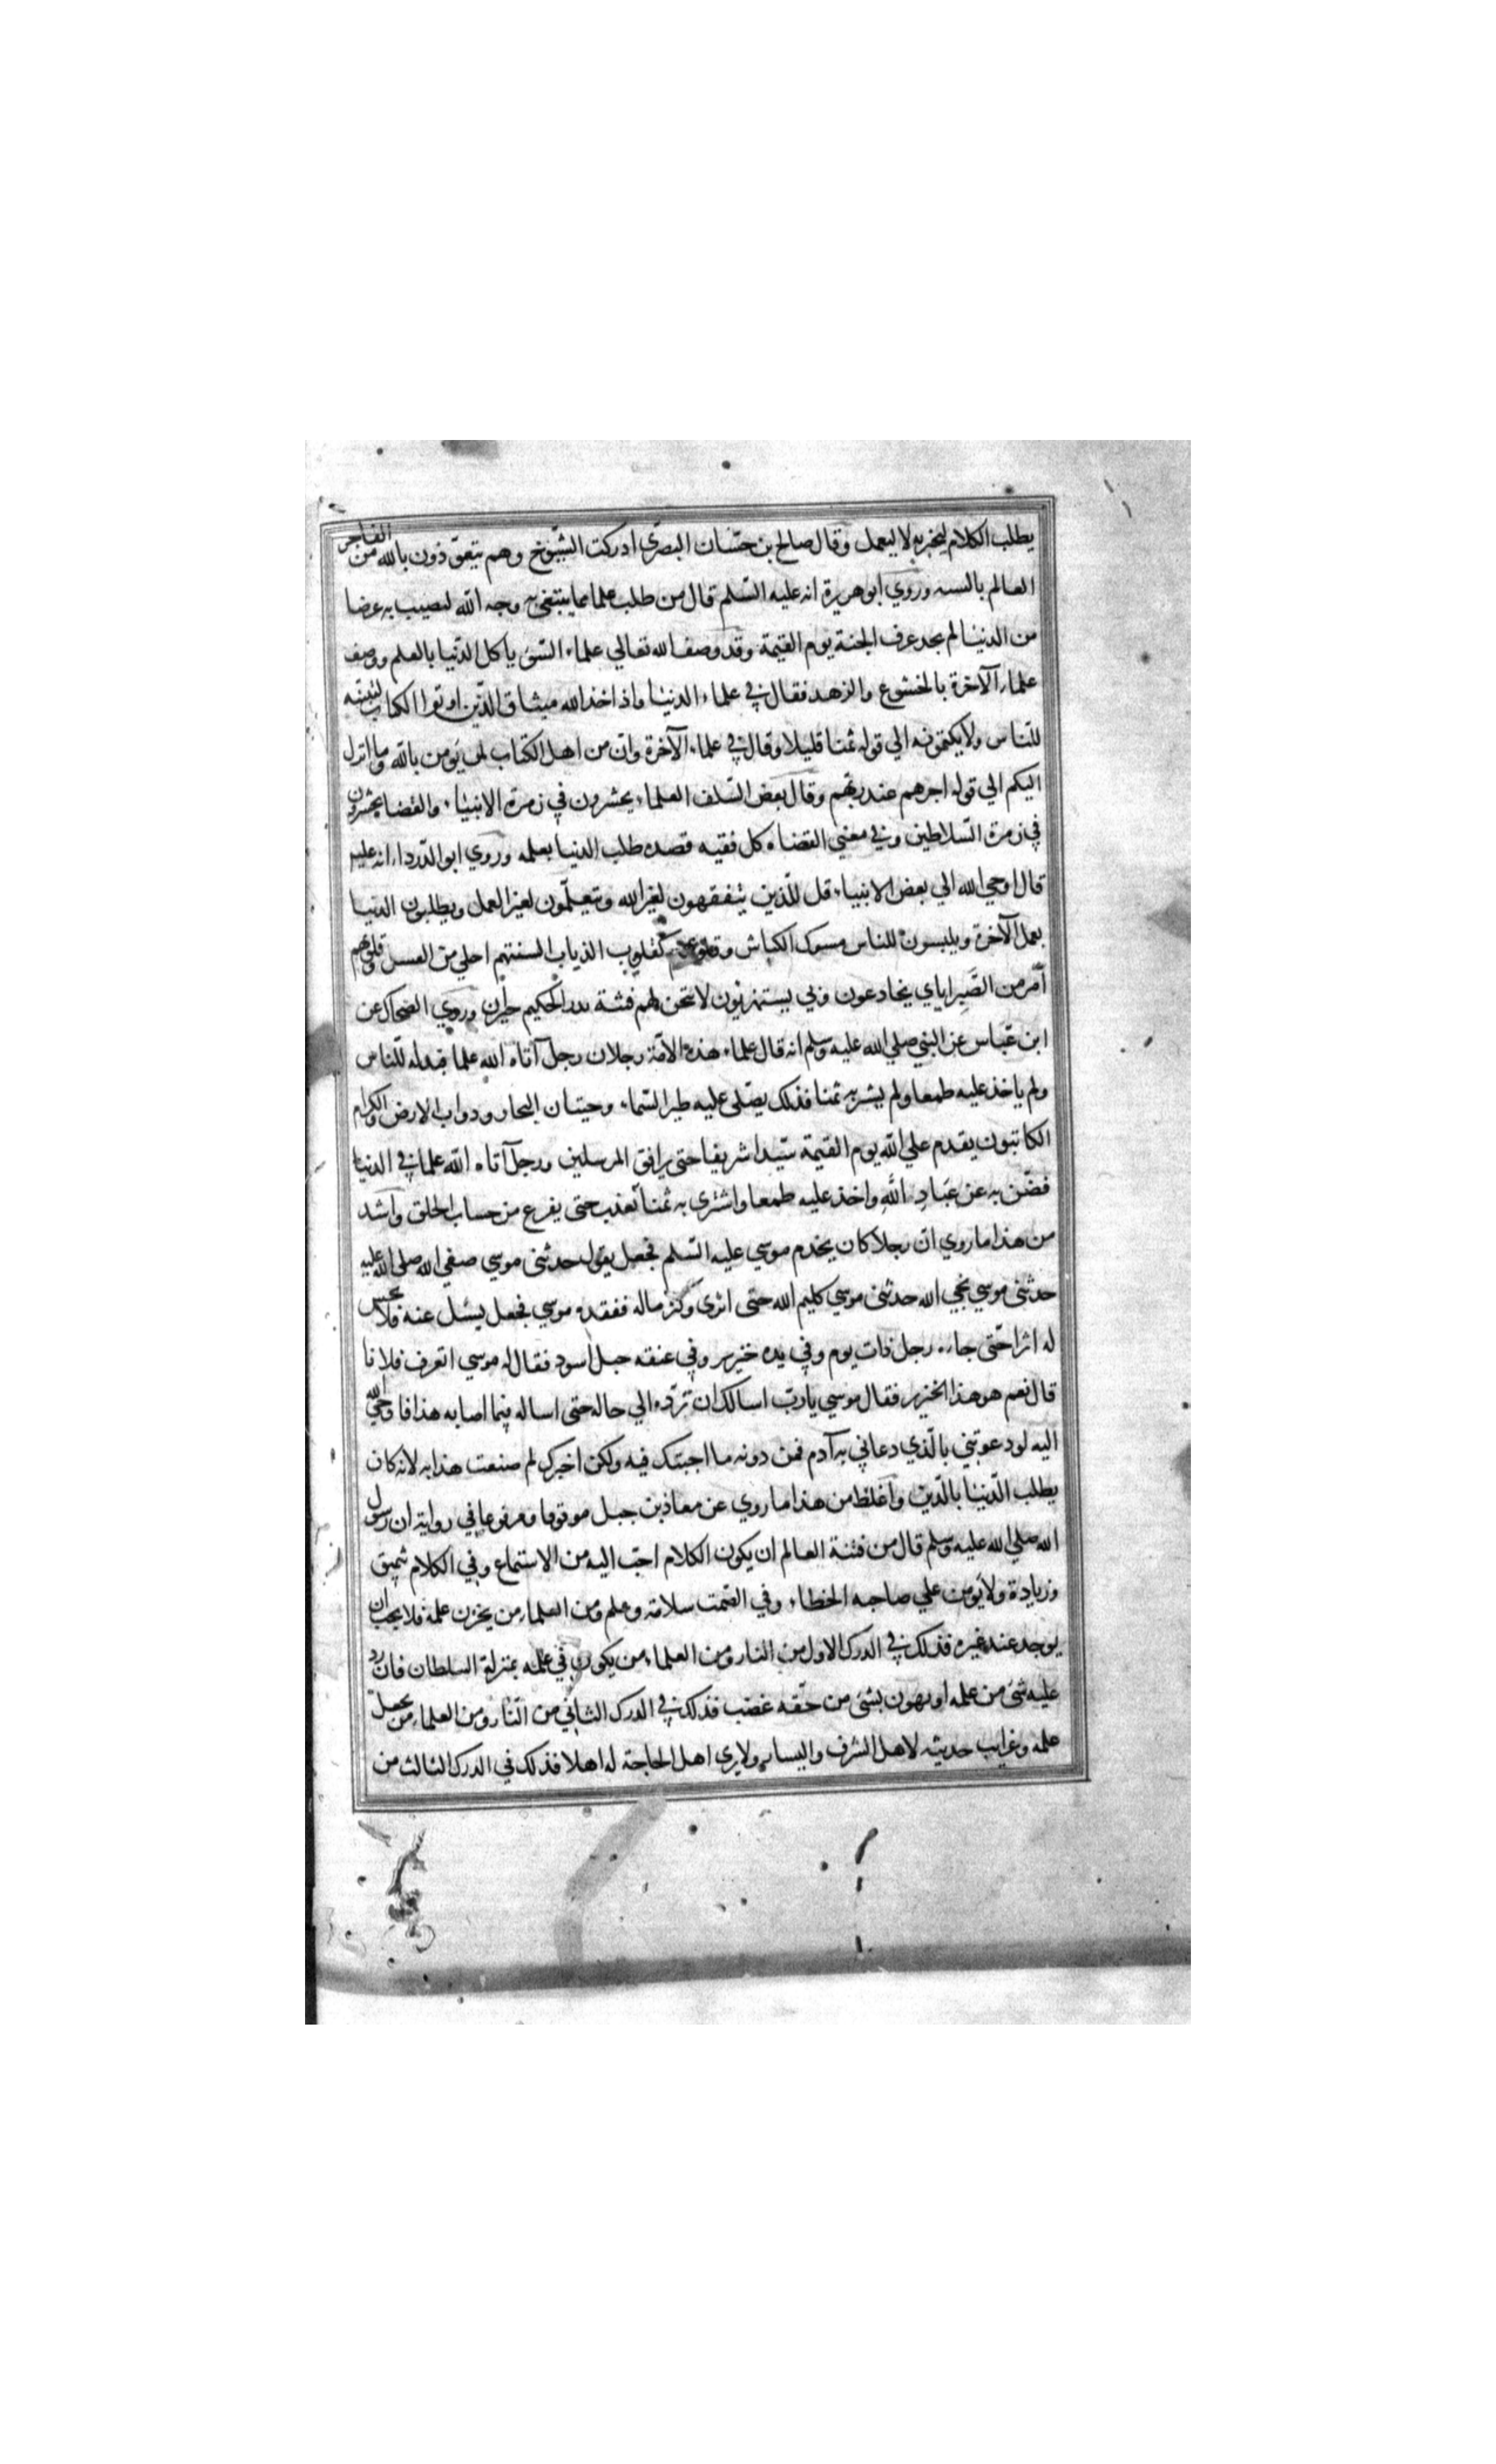 يطلب الكلام ليخبر به لا ليعمل وقال صالح بن حسّان البصرى ادركت الشيوخ وهم يتعوّذون بالله من الفاجر
العالم بالسنه وروي ابو هريرة انه عليه السّلم قال من طلب علما مما يبتغى به وجه الله ليصيب به عرضا
من الدنيا لم يجد عرف الجنة يوم القيمة وقد وصف الله تعالي علماء السّوء ياكل الدّنيا بالعلم ووصف
علماء الآخرة بالخشوع والزهد فقال في علماء الدنيا واذ اخذ الله ميثاق الّذين اوتوا الكتاب لتبيننه
للنّاس ولا يكتمونه الي قوله ثمنا قليلا وقال في علماء الآخرة وانّ من اهل الكتاب لمن يؤمن بالله وما انزل
اليكم الي قوله اجرهم عند ربّهم وقال بعض السّلف العلماء يحشرون في زمرة الانبياء والقضاة يحشرون
في زمرة السّلاطين وفي معني القضاه كل فقيه قصده طلب الدنيا بعلمه وروي ابو الدرداء انه عليه
قال اوحي الله الي بعض الانبياء قل للّذين يتفقهون لغير الله ويتعلّمون لغير العمل ويطلبون الدنيا
بعمل الآخرة ويلبسون للناس مسوك الكباش وقلوبهم كقلوب الذياب السنتهم احلي من العسل وقلوبهم
أمّر من الصَبِر اياي يخادعون وبي يستهزئون لا تحن لهم فتنة تدر الحكيم حيران وروي الضحاك عن
ابن عبّاس عن النبي صلي الله عليه وسلم انه قال علماء هذه الامّة رجلان رجل آتاه الله علما فبدله للنّاس
ولم ياخذ عليه طمعا ولم يشتر به ثمنا فذلك يصلى عليه طير السّماء وحيتان البحار ودواب الارض والكرام
الكاتبون يقدم علي الله يوم القيمة سيّدا شريفا حتى يرافق المرسلين ورجل آتاه الله علما في الدنيا
فضّن به عن عِبَادِ اللهِ واخذ عليه طمعا واشترى به ثمنا يعذب حتى يفرغ من حساب الخلق واشد
من هذا ما روي انّ رجلا كان يخدم موسي عليه السّلم فجعل يقول حدثنى موسي صفي الله صلى الله عليه
حدثنى موسي نجي الله حدثنى موسي كليم الله حتى اثرى وكثر ماله ففقده موسي فجعل يسئل عنه فلا يحس
له اثرا حتّى جاءه رجل ذات يوم وفي يده خنزير وفي عنقه حبل اسود فقال له موسي اتعرف فلانا
قال نعم هو هذا الخنزير فقال موسي يا ربّ اسالك ان تردّه الي حاله حتى اساله فيما اصابه هذا فاوحي الله
اليه لو دعوتني بالّذي دعاني به آدم فمن دونه ما اجبتك فيه ولكن اخبرك لم صنعت هذا به لانه كان
يطلب الدّنيا بالدّين واغلظ من هذا ما روي عن معاذ بن جبل موقوفا ومرفوعا في رواية ان رسول
الله صلي الله عليه وسلم قال من فتنة العالم ان يكون الكلام احبّ اليه من الاستماع وفي الكلام تنميق
وزيادة ولا يؤمن علي صاحبه الخطاء وفي الصّمت سلامة وعلم ومن العلماء من يخزن علمه فلا يحب ان
يوجد عند غيره فذلك في الدرك الاول من النار ومن العلماء من يكون في علمه بمنزلة السلطان فان رد
عليه شئ من علمه او يهون بشئ من حقّه غضب فذلك في الدرك الثاني من النّار ومن العلماء من يجعل
علمه وغرايب حديثه لاهل الشرف واليسار ولا يرى اهل الحاجة له اهلا فذلك في الدرك الثالث من